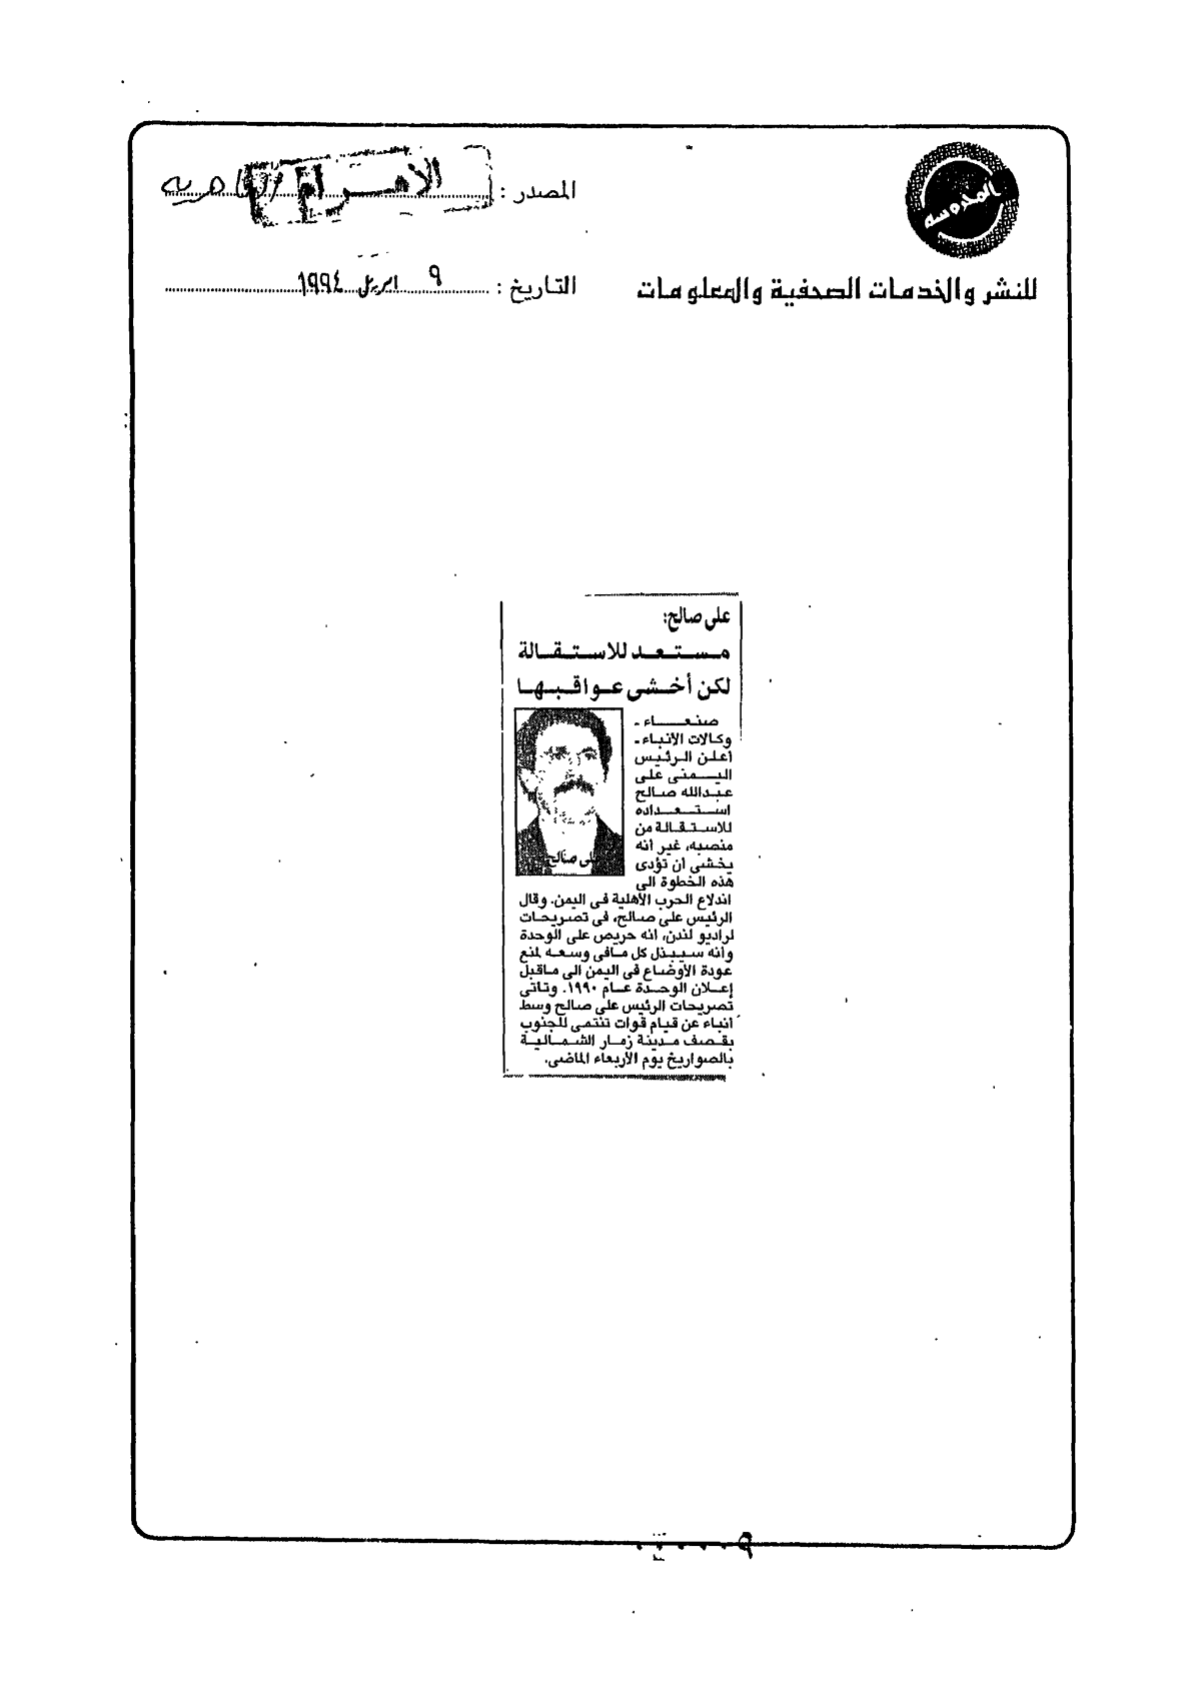 المدوسه
للنشر والخدمات الصحفية والمعلومات
المصدر : الأهرام القاهرية
التاريخ : ٩ ابريل ١٩٩٤
على صالح:
مستعد للاستقالة
لكن أخشى عواقبها
صنعاء -
وكالات الانباء -
أعلن الرئيس
اليمنى على
عبدالله صالح
استعداده
للاستقالة من
منصبه، غير انه
يخشى ان تؤدى
هذه الخطوة الى
اندلاع الحرب الأهلية فى اليمن. وقال
الرئيس على صالح، فى تصريحات
لراديو لندن، انه حريص على الوحدة
وأنه سيبذل كل مافى وسعه لمنع
عودة الأوضاع فى اليمن الى ماقبل
إعلان الوحدة عام ١٩٩٠. وتاتى
تصريحات الرئيس على صالح وسط
انباء عن قيام قوات تنتمى للجنوب
بقصف مدينة زمار الشمالية
بالصواريخ يوم الأربعاء الماضى.
على صالح